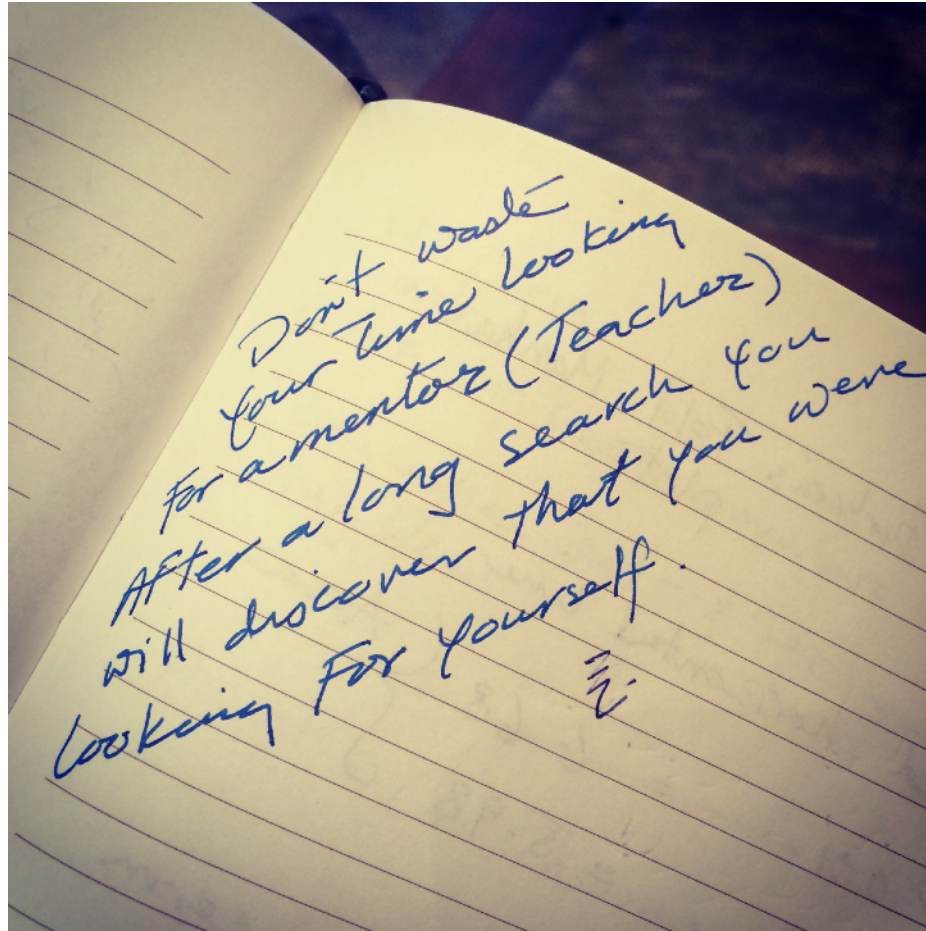 Don't waste
your time looking
For a mentor (Teacher)
After a long search you
will discover that you were
looking For yourself.